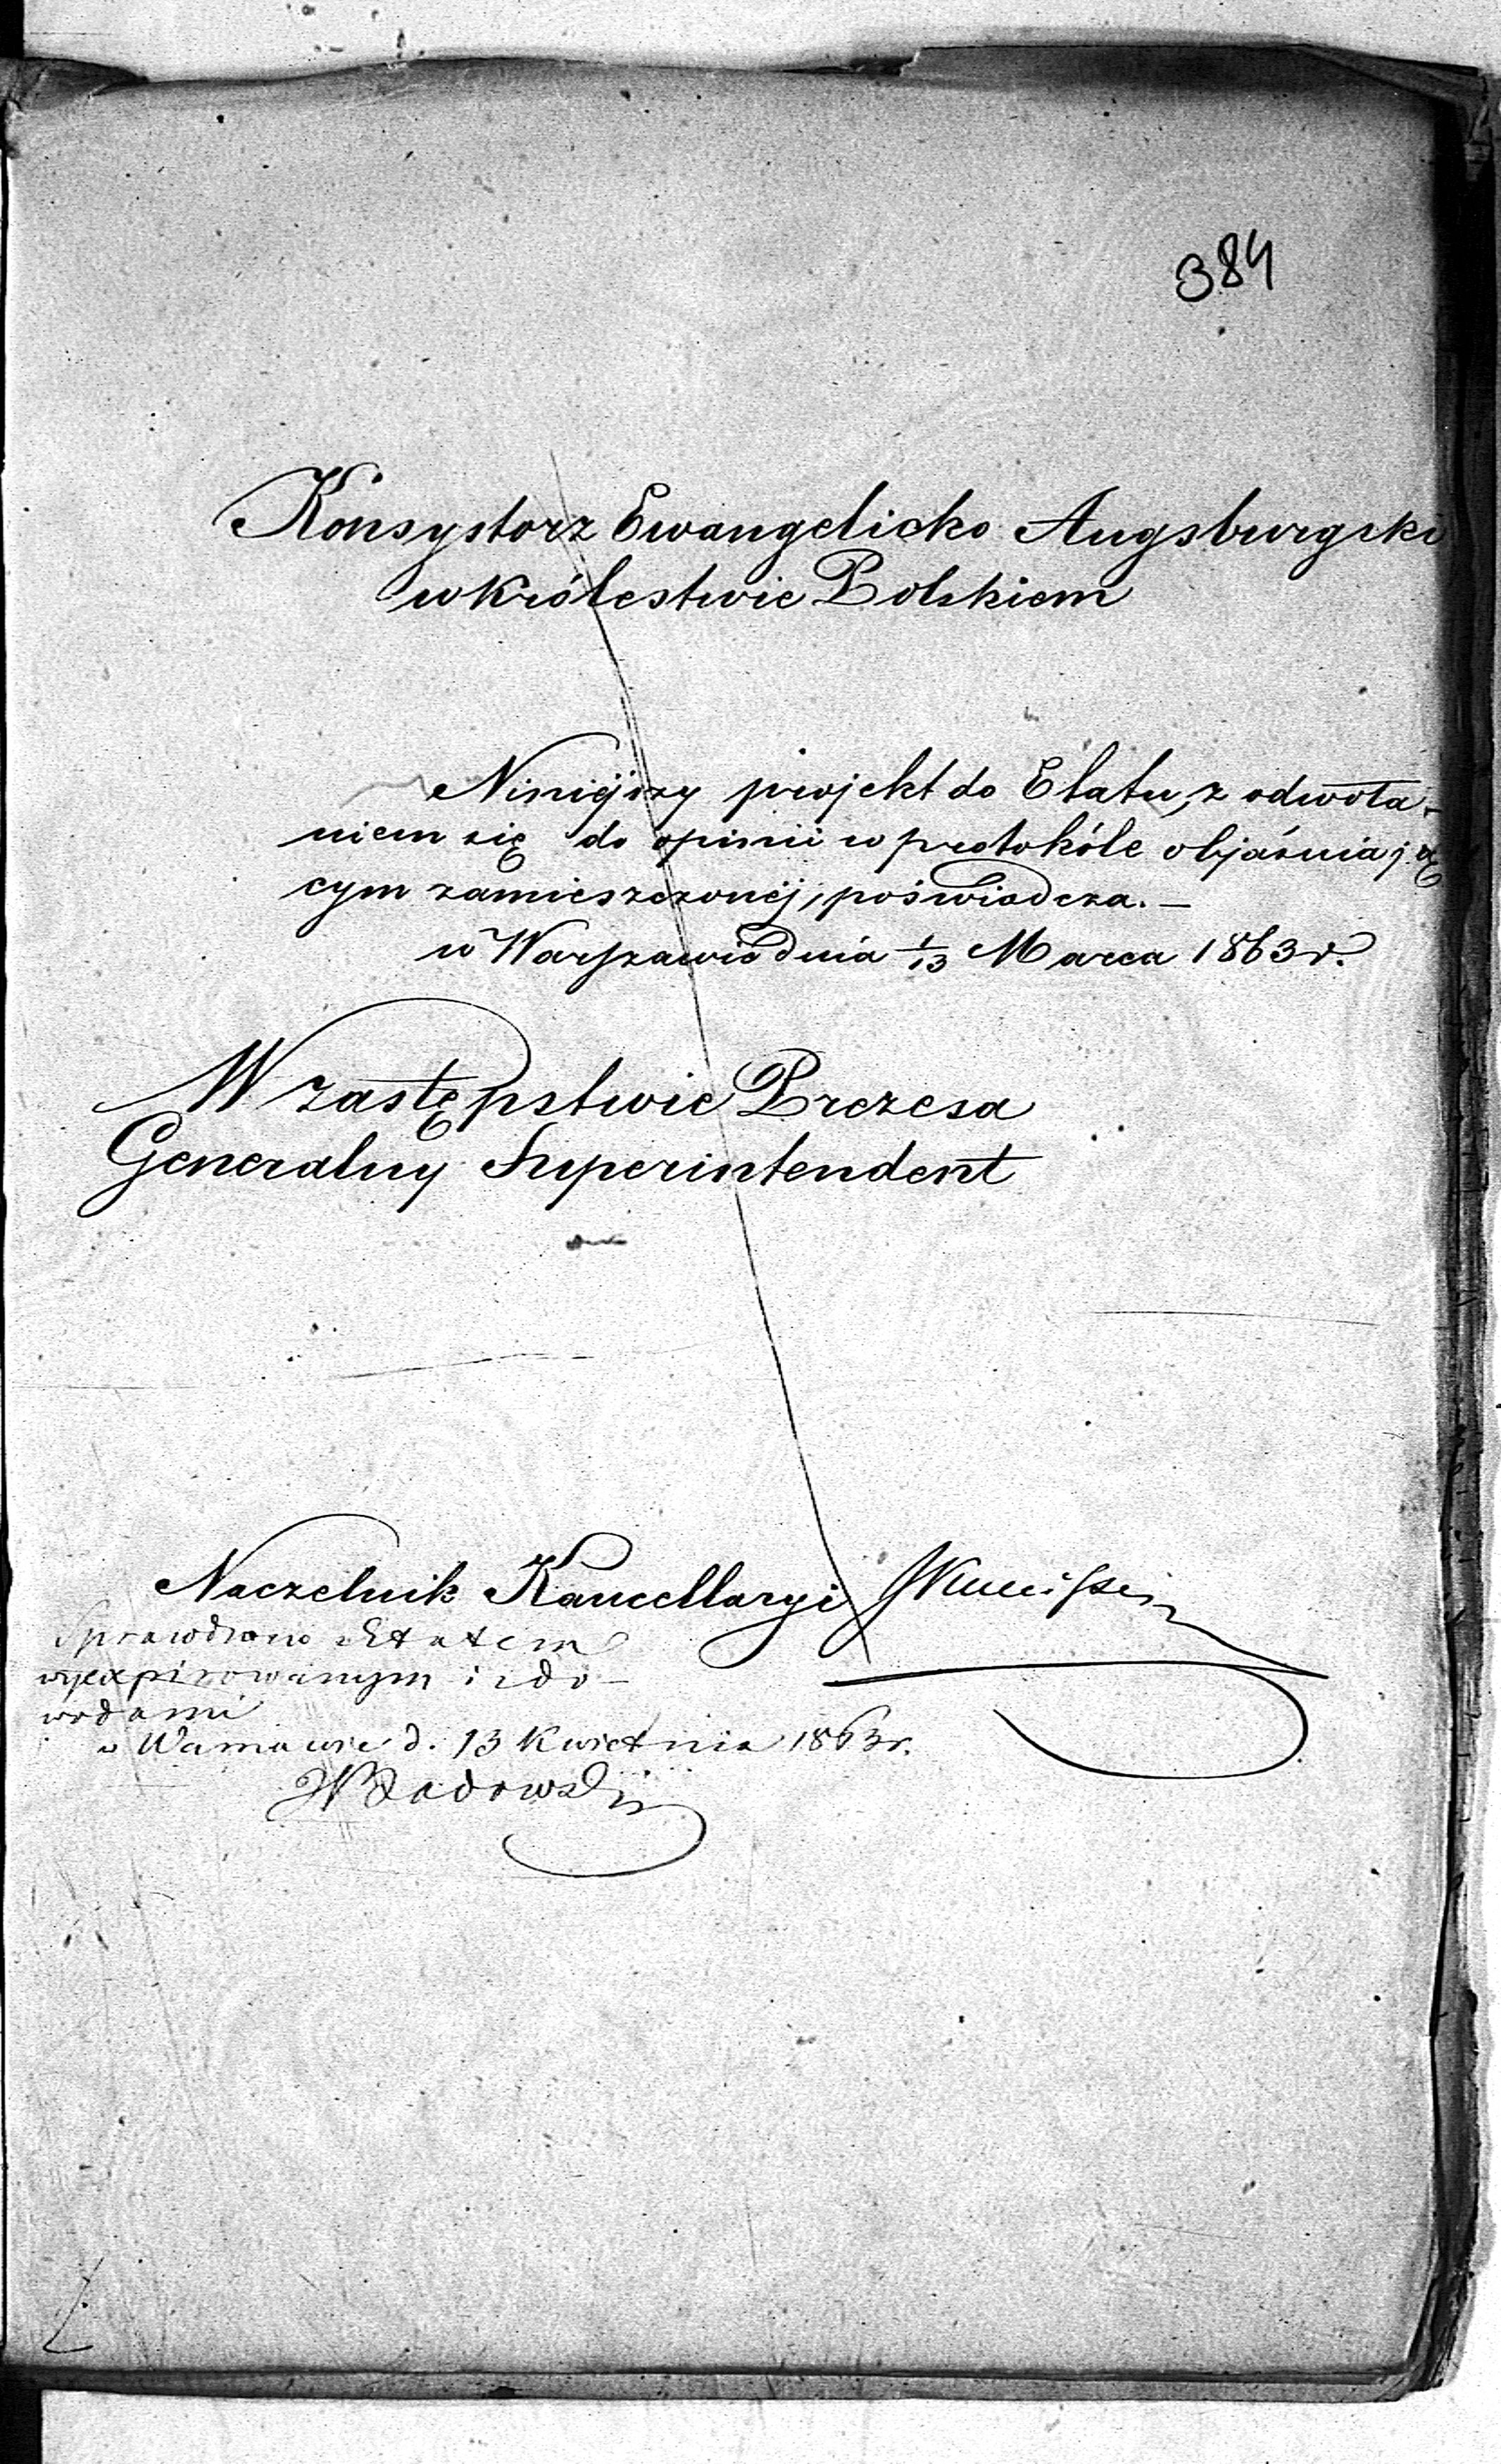 384
Konsystorz Ewangelicko Augsburgski
w Królestwie Polskiem
Niniejszy projekt do Etatu, z odwoła-
niem się do opinii w protokóle objaśniają
cym zamieszczonéj, poświadcza. —
w Warszawie dnia 1/13 Marca 1863 r.
W zastępstwie Prezesa
Generalny Superintendent
Naczelnik Kancellaryi
Sprawdzono z Etatem
wyexpirowanym i z do-
wodami
w Warszawie d. 13 Kwietnia 1863 r.